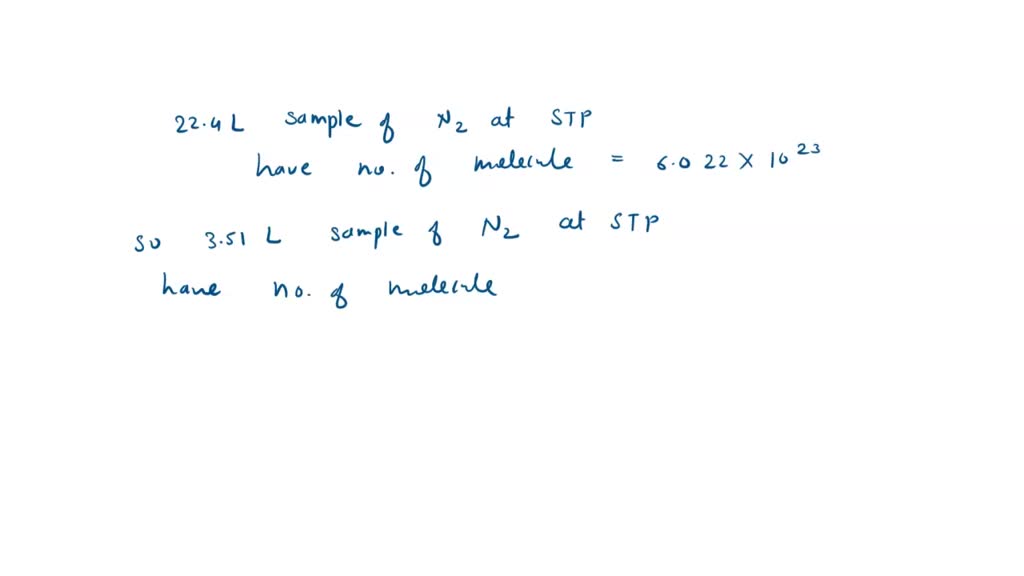 22.4 L sample of N2 at STP
have no. of molecule = 6.022 X 10^23
so 3.51 L sample of N2 at STP
have no. of molecule